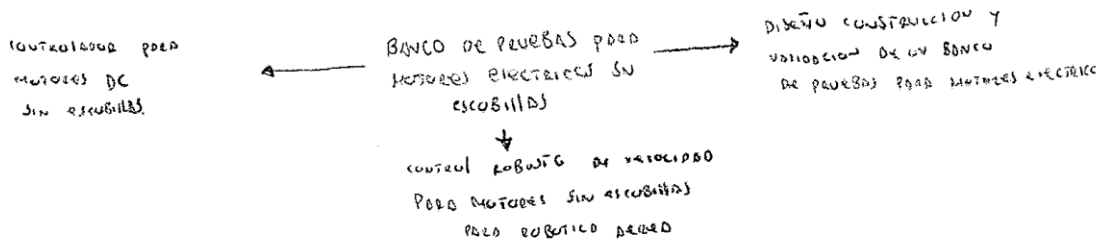 CONTROLADOR PARA
MOTORES DC
SIN ESCOBILLAS.
BANCO DE PRUEBAS PARA
MOTORES ELECTRICOS SIN
ESCOBILLAS
DISEÑO CONSTRUCCION Y
VALIDACION DE UN BANCO
DE PRUEBAS PARA MOTORES ELECTRICO
CONTROL ROBUSTO DE VELOCIDAD
PARA MOTORES SIN ESCOBILLAS
PARA ROBOTICA AEREA